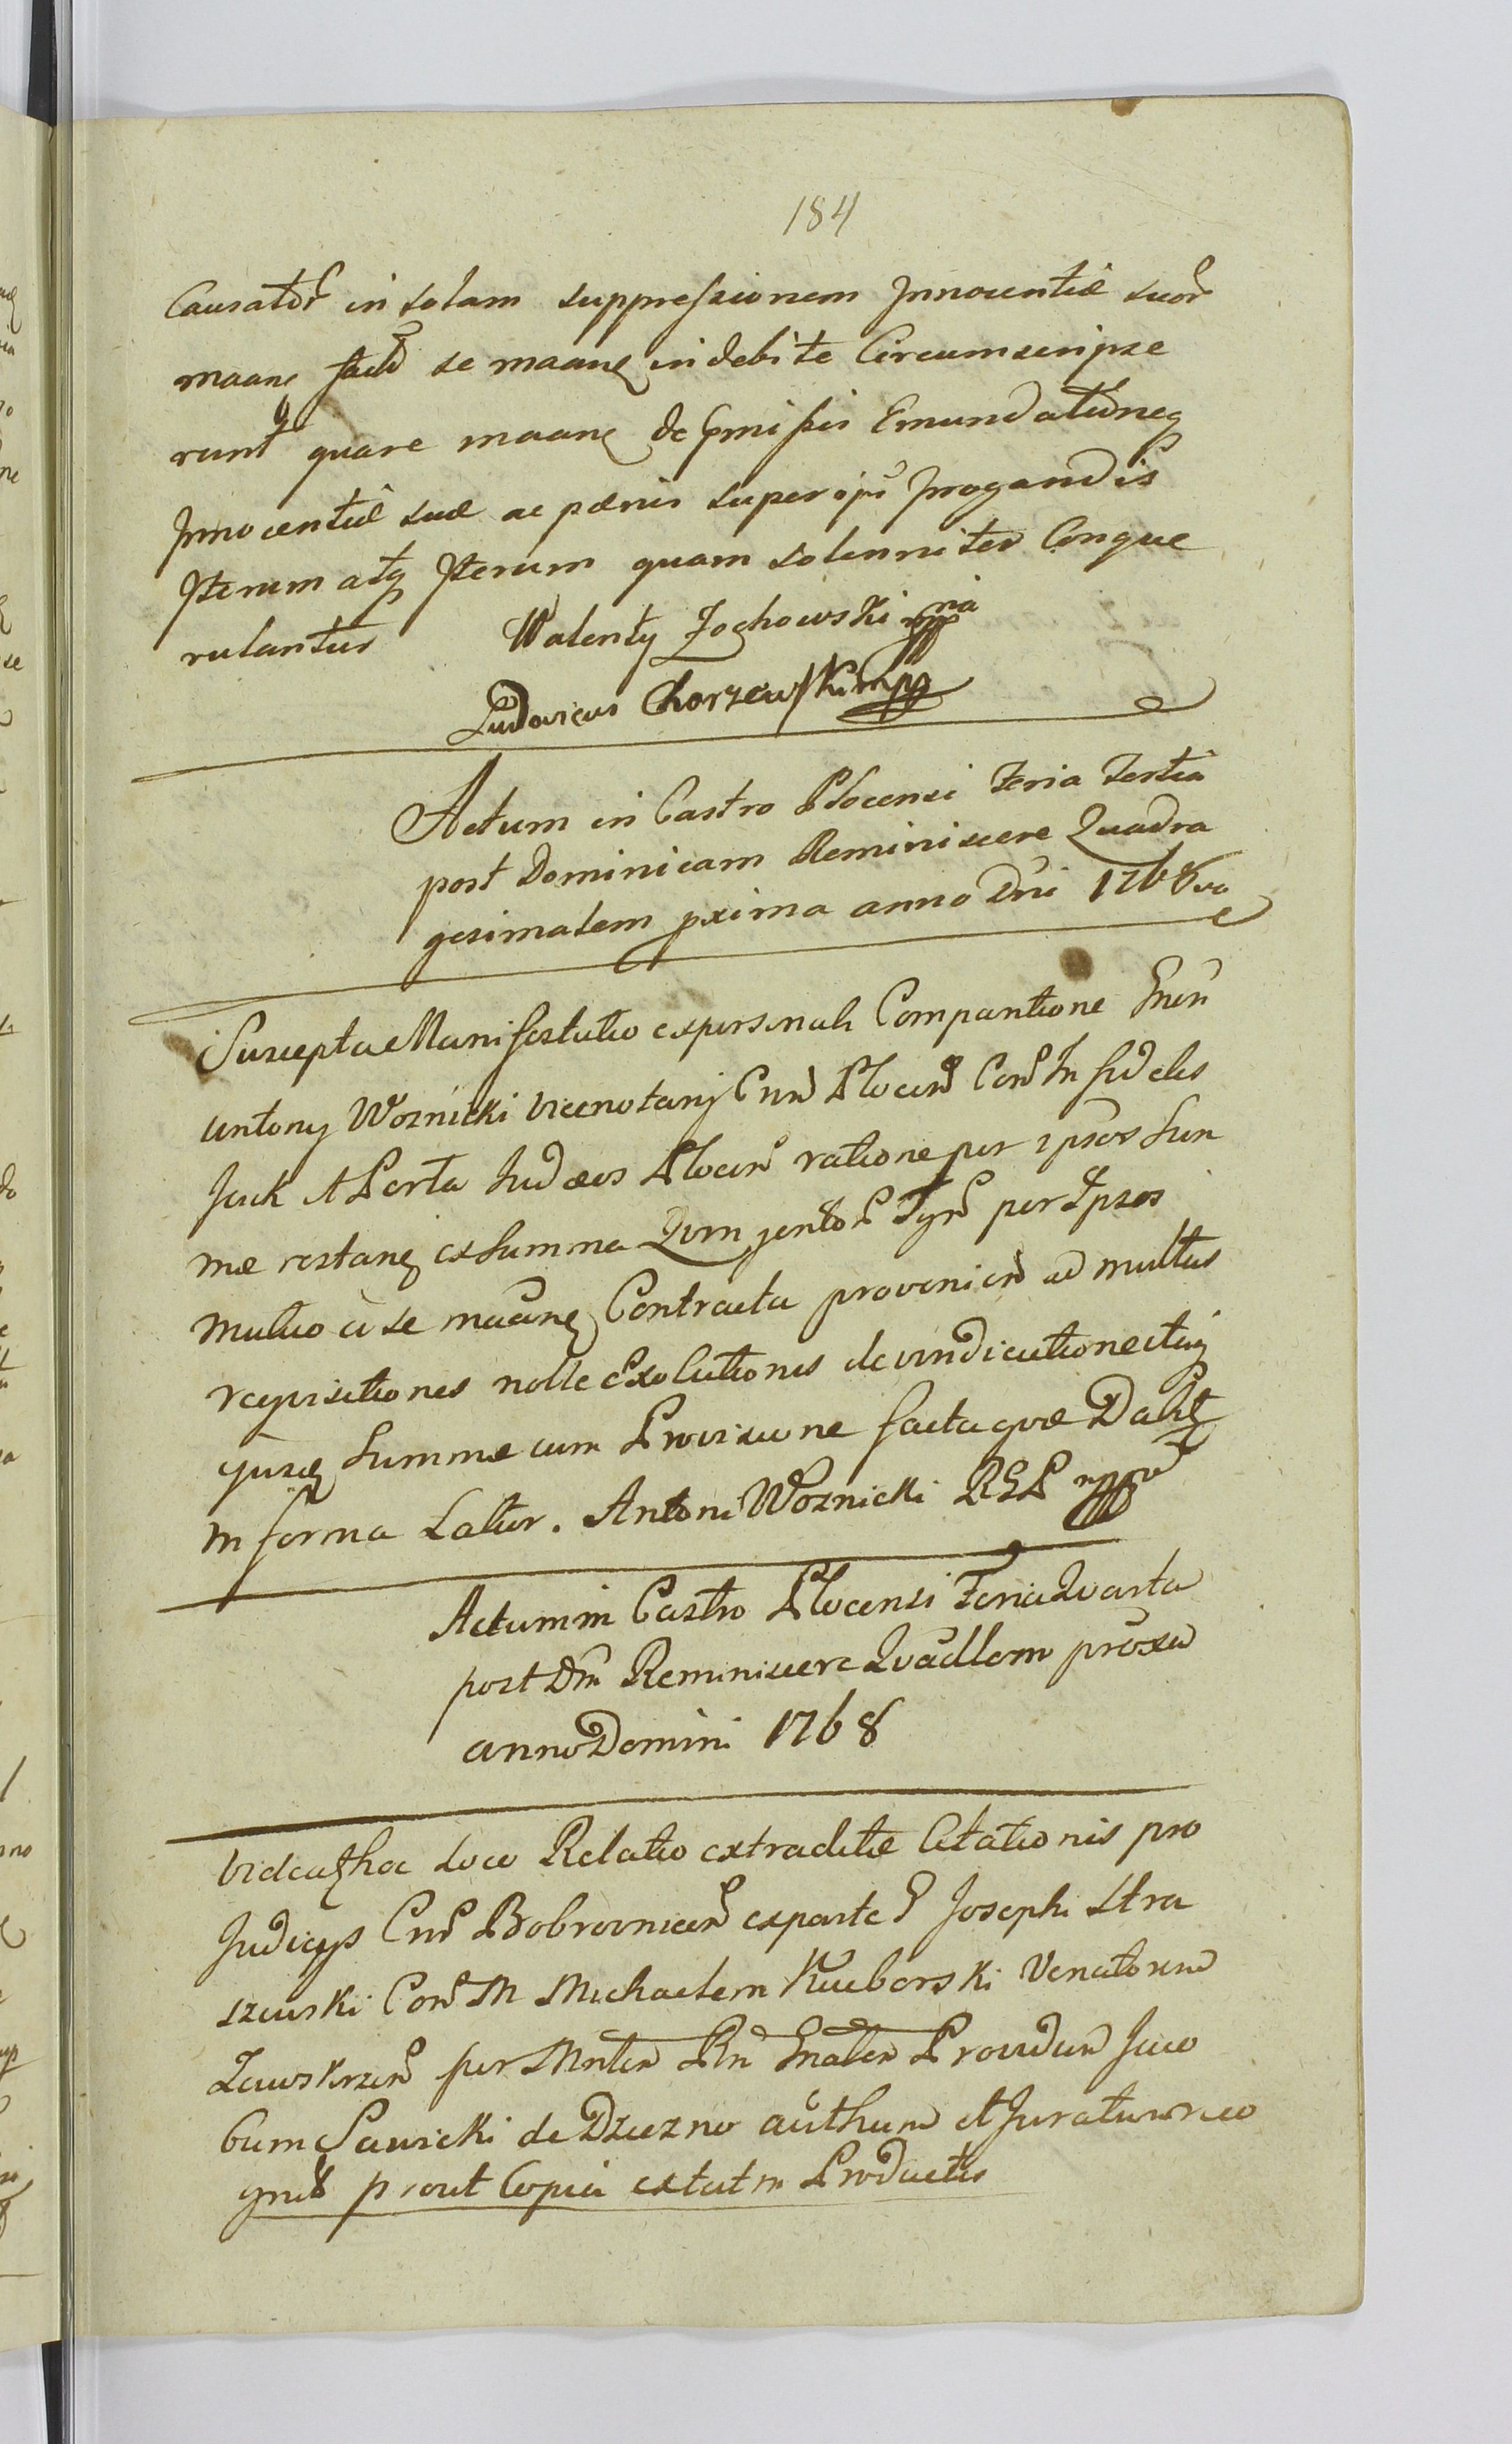 184
Causator in solam suppressionem Innocentiæ suor
maan facto se maanq indebite Circumscripse
runt quare maanq de pmissis Emundationeq
Innocentiæ suæ ac pænis super ips irrogandis
Iterum atq Iterum quam solenniter Conque
rulantur Walenty Żochowski mpp
Ludovicus Chorzewski mpp
Actum in Castro Plocensi Feria Tertia
post Dominicam Reminiscere Quadra
gesimalem pxima anno Dni 1768vo
Suscepta Manifestatio ex personali Comparitione Gnri
Antony Woznicki vicenotarij Cnr Plocen Con Infideles
Jcek et Perta Judæos Plocen ratione per ipsos Sum
mæ restanq ex Summa Tyn per Ipsos
mutuo a se maanq Contracta provenien ad multas
reqvisitiones nolle Exolutionis de vindicatione
Summæ cum Provisione facta qvæ Dabit
in forma Latior. Antoni Woznicki RGP mpp
Actum in Castro Plocensi Feria Qvarta
post Dm Reminiscere Qvadlem proxa
anno Domini 1768
Videatq hoc loco Relatio extraditæ Citationis pro
Judicys Cnr Bobrovnicen ex parte G Josephi Stra
szewski Con M Michaelem Kucborski Venatorem
Zawskrzen per Mnlem Rn Gnalen Providum Jaco
bum Sawicki de Dzezno authum et Juratum reco
gnit prout Copia extat in Productis